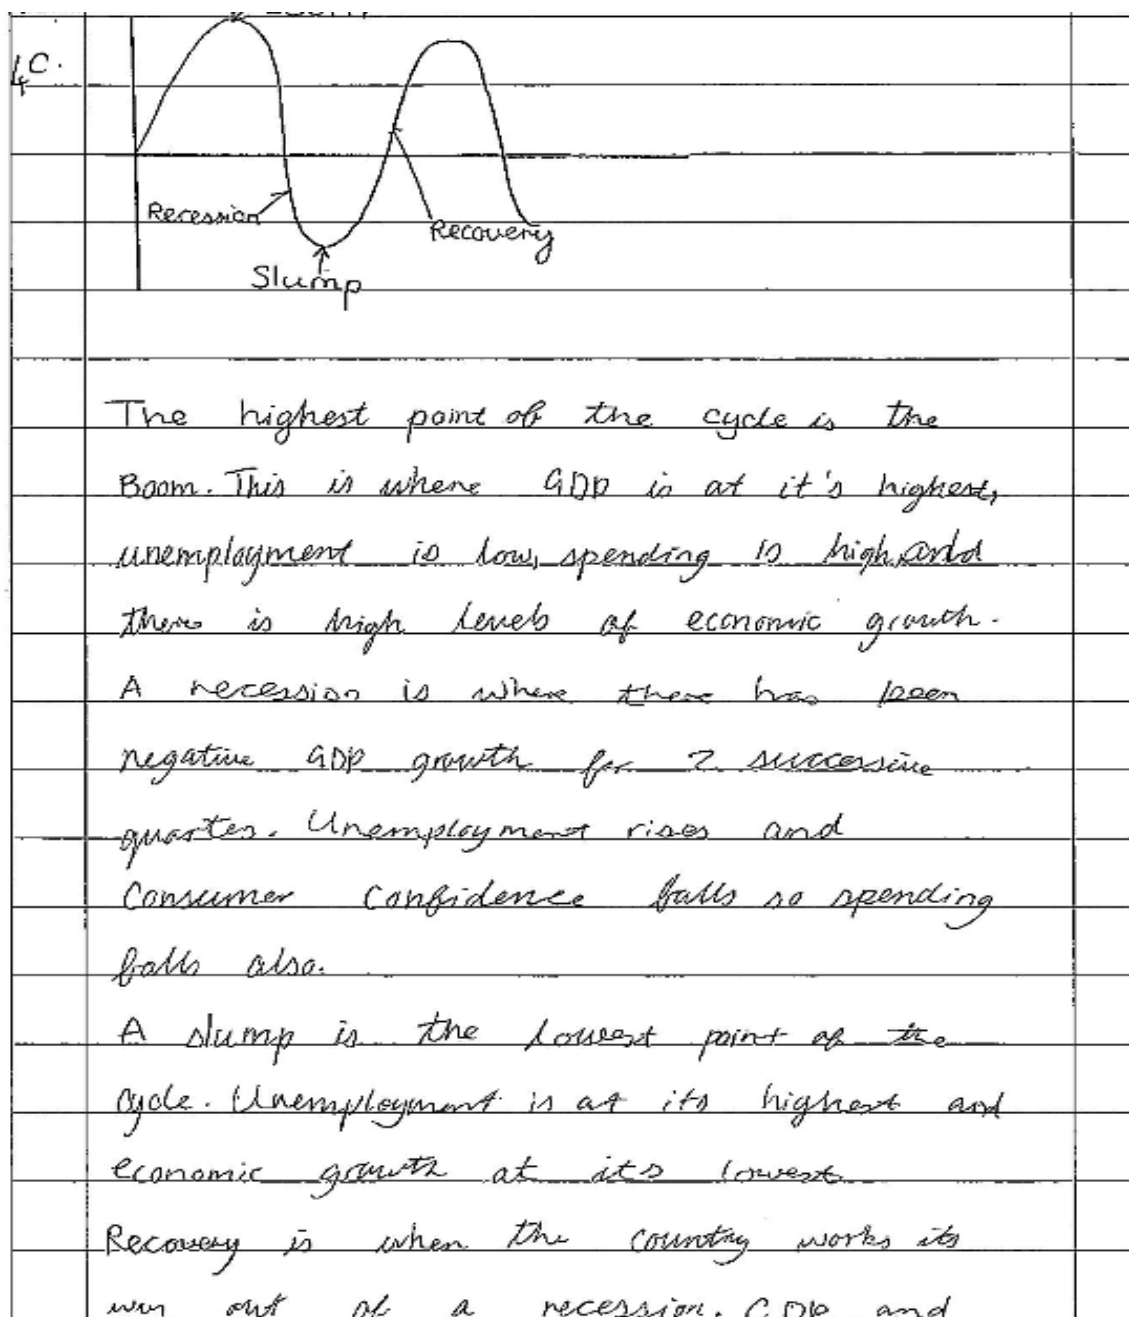 4C.
Recession
Recovery
Slump
The highest point of the cycle is the
Boom. This is where GDP is at it's highest,
unemployment is low, spending is high, and
there is high levels of economic growth.
A recession is where there has been
negative GDP growth for 2 successive
quarters. Unemployment rises and
Consumer Confidence falls so spending
falls also.
A slump is the lowest point of the
cycle. Unemployment is at its highest and
economic growth at its lowest
Recovery is when the country works its
way out of a recession. GDP and